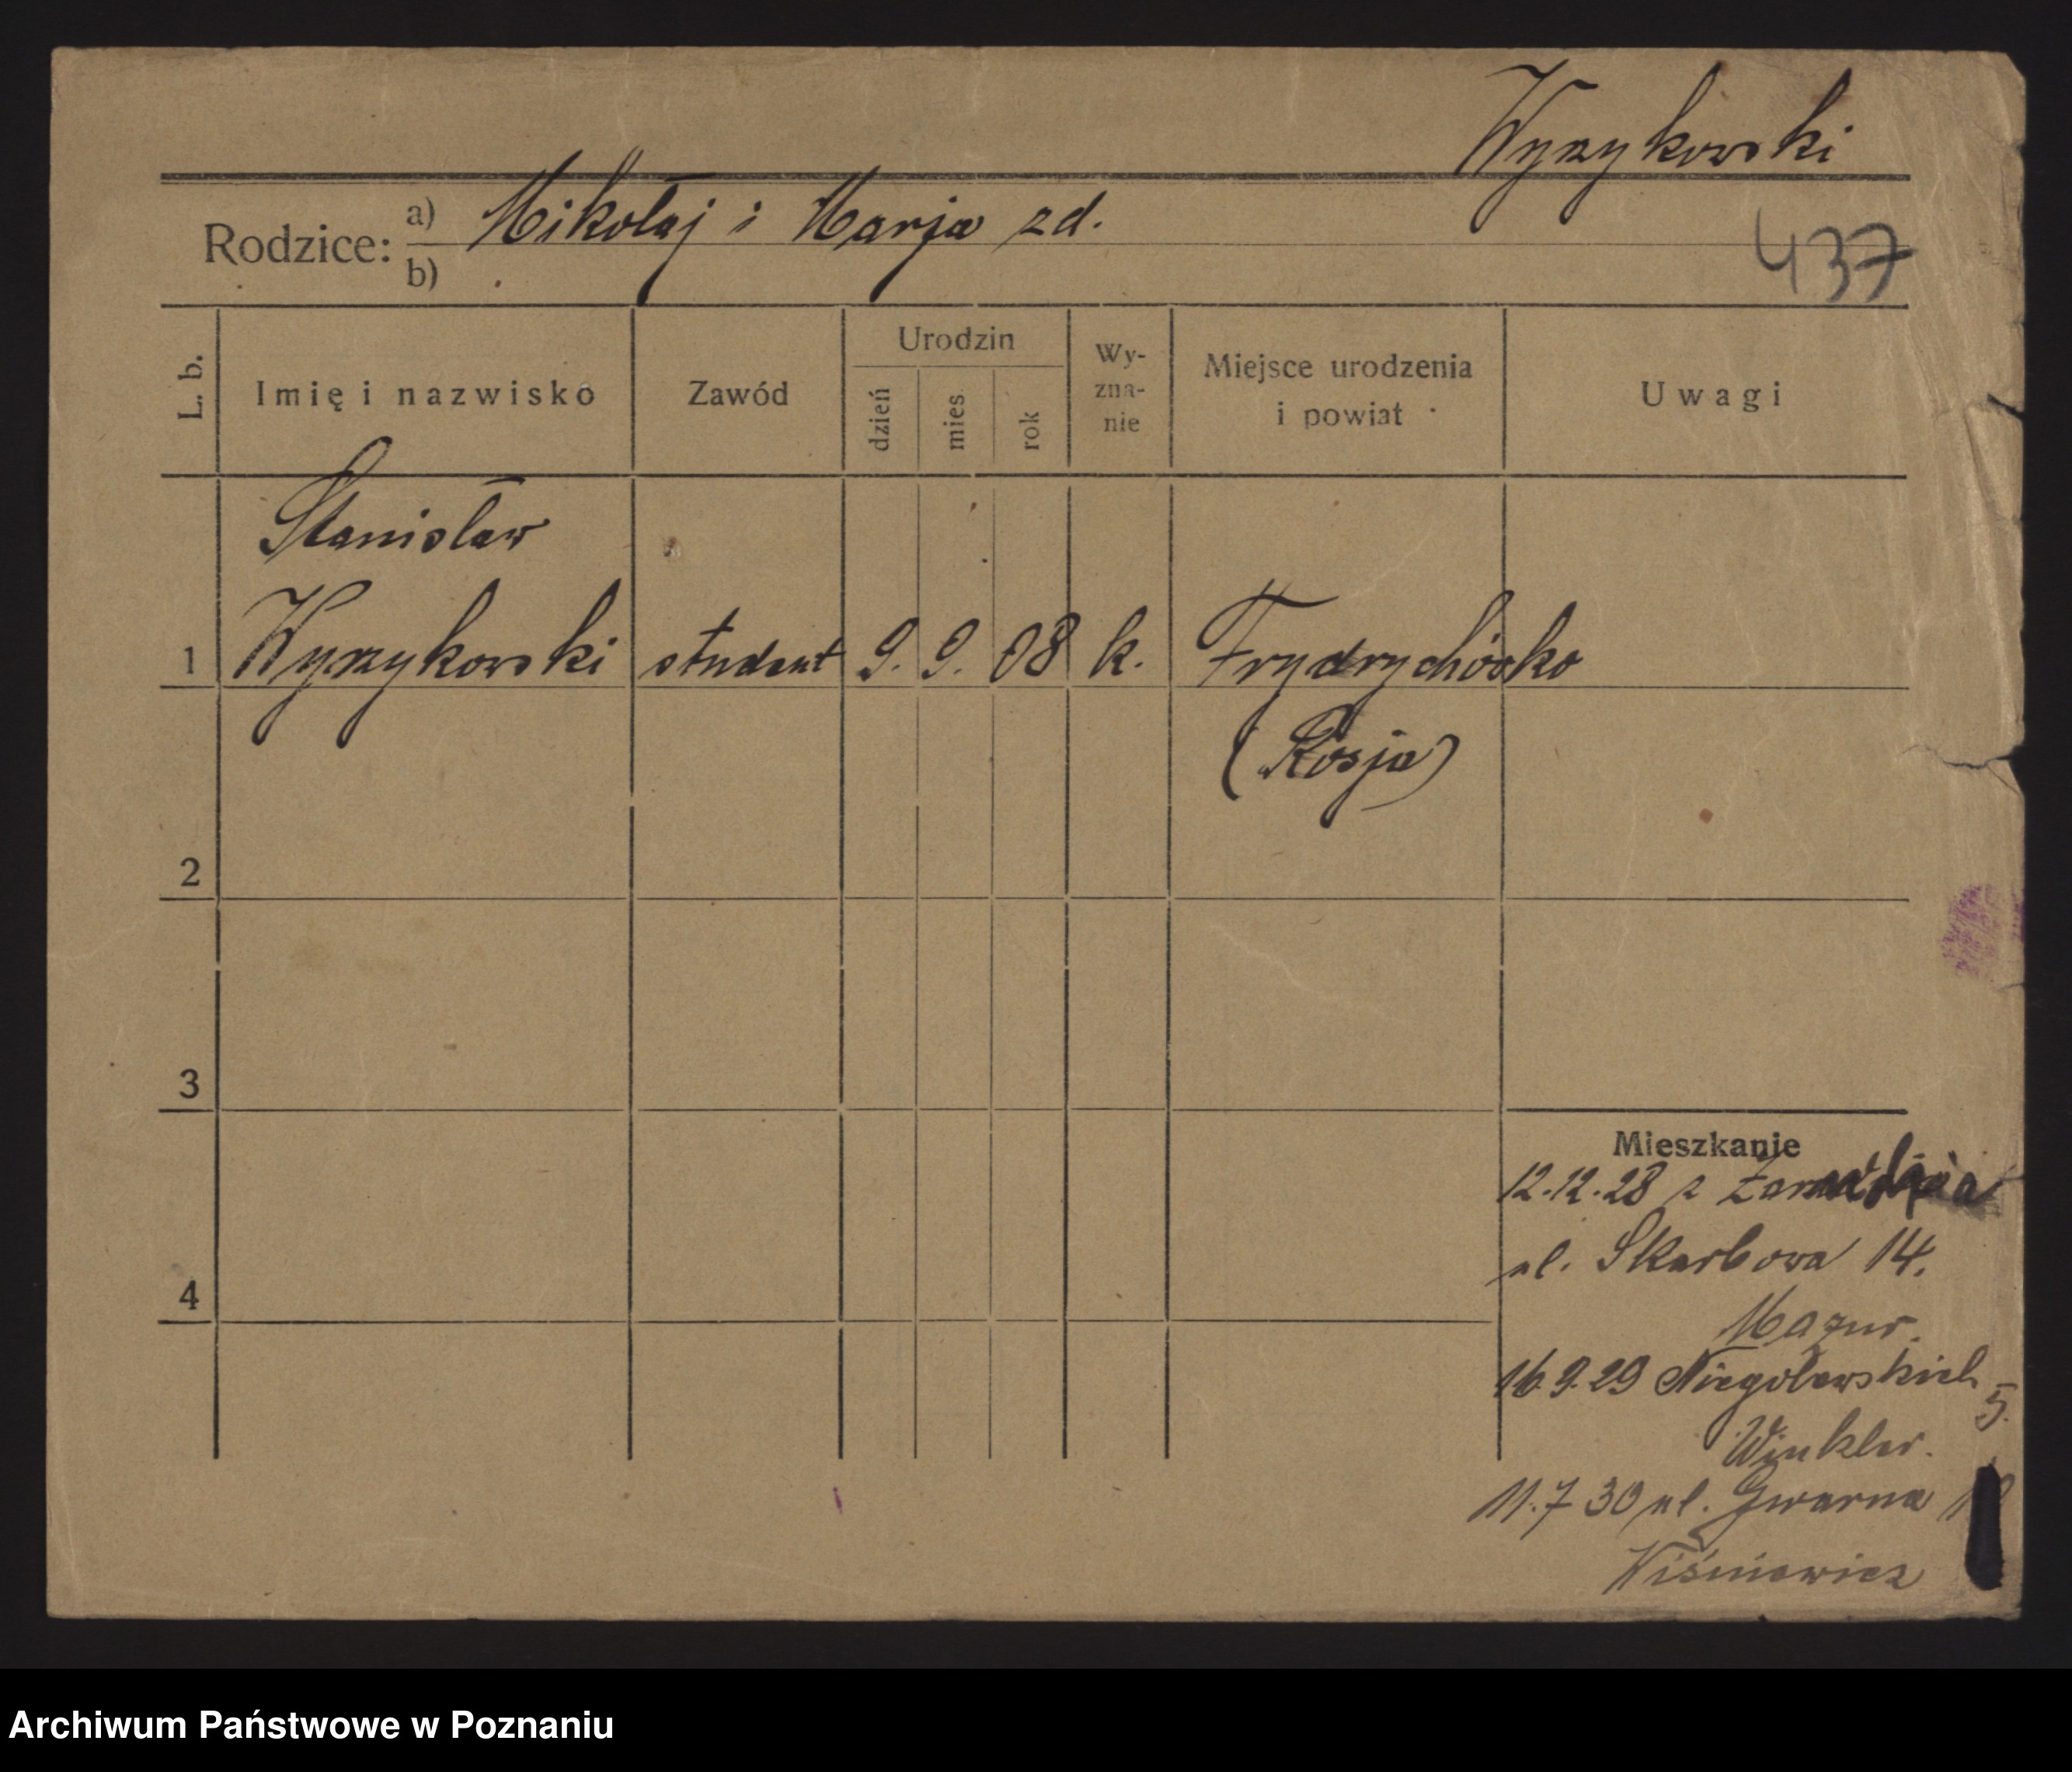 Wyrzykowski
Rodzice: a) Mikołaj i Marja zd.
b)
437
L. b.
Imię i nazwisko
Zawód
Urodzin
dzień
mies.
rok
Wy-
zna-
nie
Miejsce urodzenia
i powiat
Uwagi
Stanisław
1 Wyrzykowski student 9. 9. 08 k.
(Rosja)
2
3
4
Mieszkanie
12.12.28 z
ul. Skarbowa 14.
Mazur.
16.9.29 Niegolewskich 5.
Winkler.
11.7 30 ul. Gwarna
Wiśniewicz
Archiwum Państwowe w Poznaniu